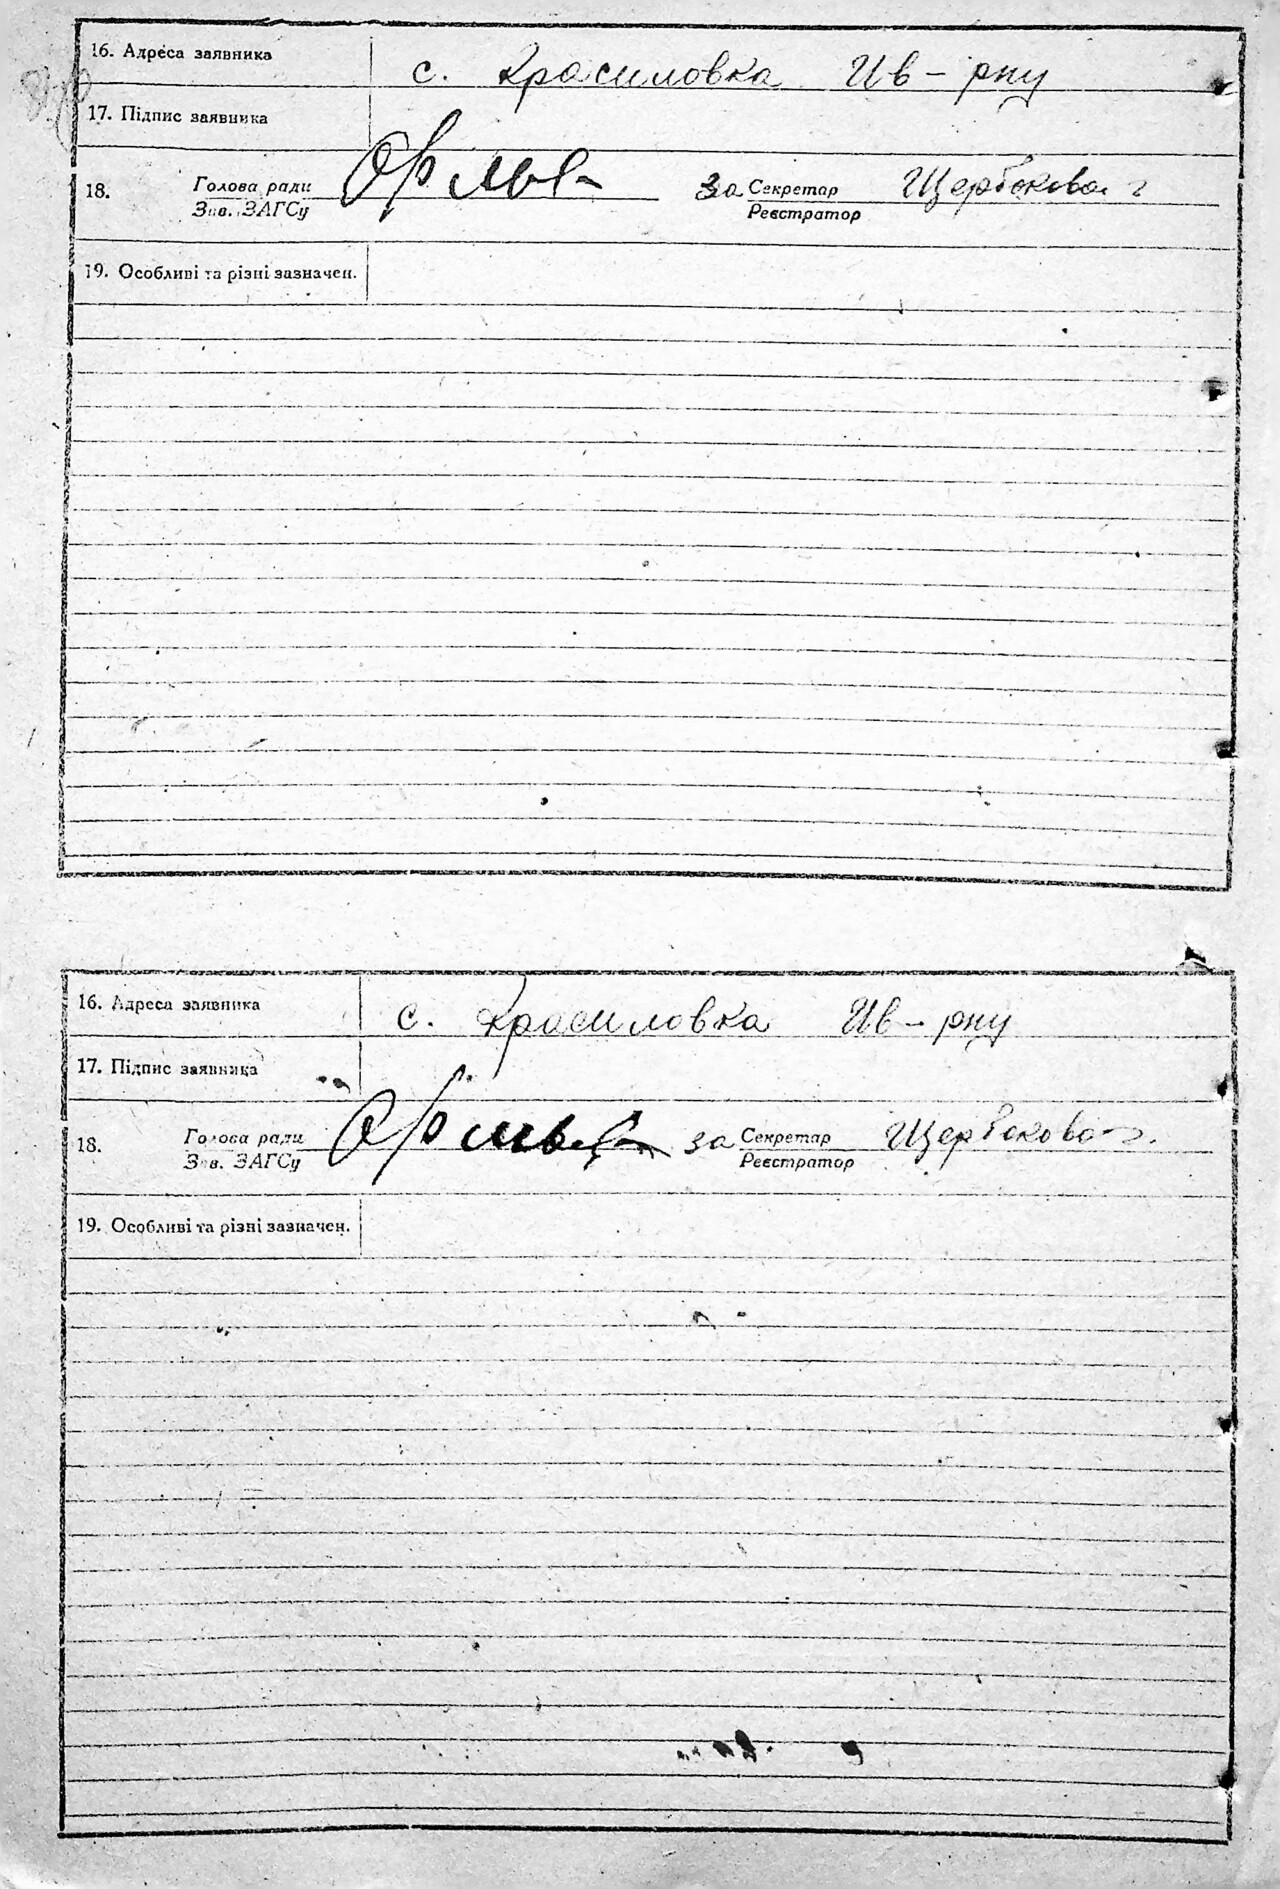 16. Адреса заявника с. Красиловка Ив-рну
17. Підпис заявника
18. Голова ради за Секретар Щербакова
Зав. ЗАГСу Реєстратор
19. Особливі та різні зазначен.
16. Адреса заявника с. Красиловка Ив-рну
17. Підпис заявника
18. Голова ради за Секретар Щербакова
Зав. ЗАГСу Реєстратор
19. Особливі та різні зазначен.